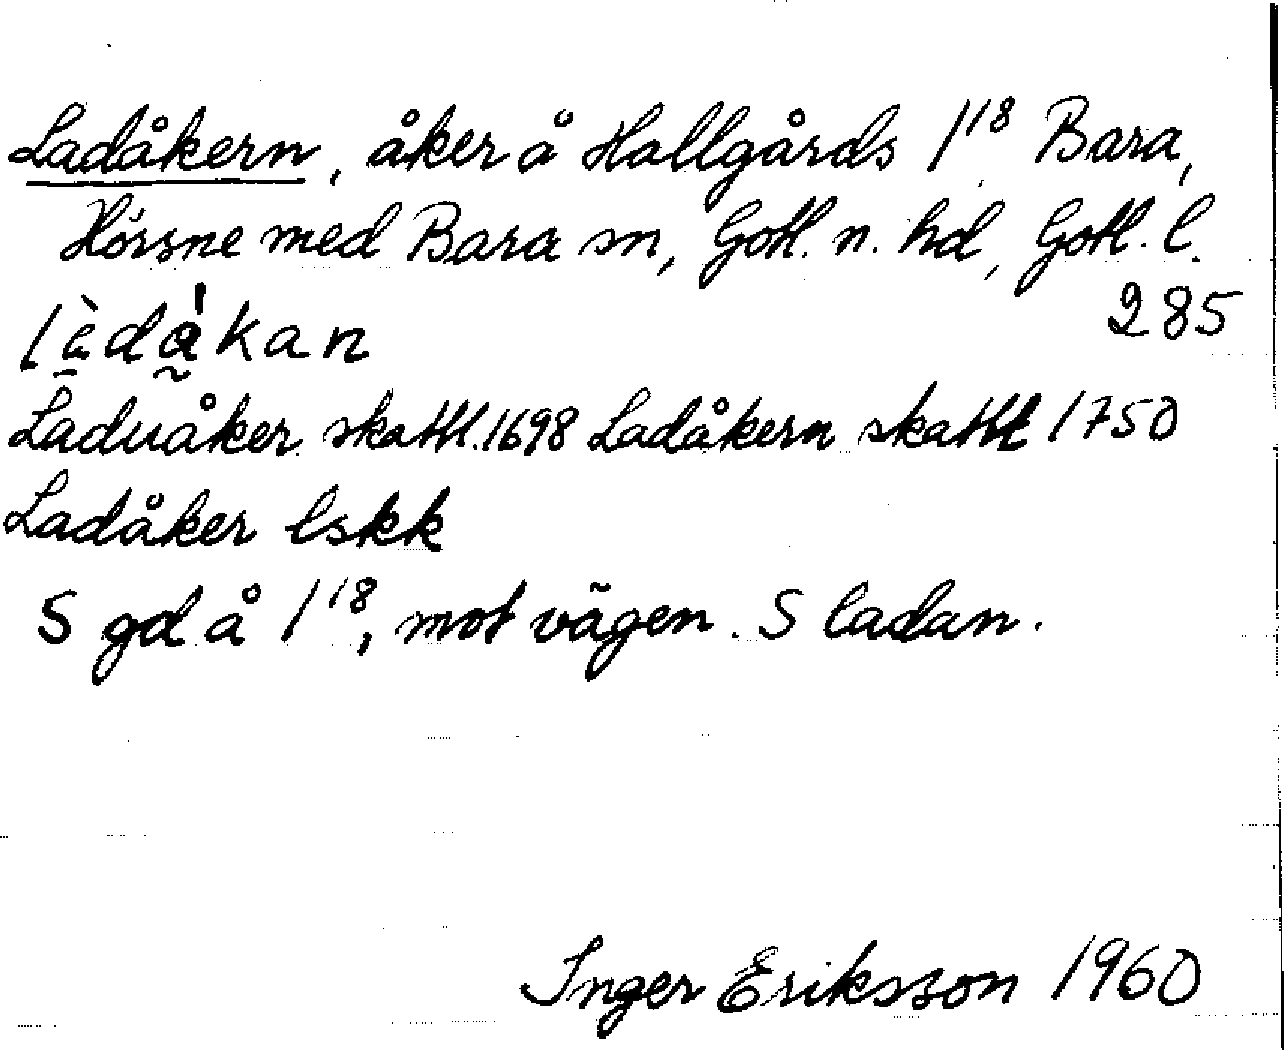 Ladåkern, åker å Hallgårds 1¹⁸ Bara,
Hörsne med Bara sn, Gotl. n. hd, Gotl. l.
285
Laduåker skattl. 1698 Ladåkern skattl 1750
Ladåker lskk
S gd å 1¹⁸, mot vägen. S ladan.
Inger Eriksson 1960